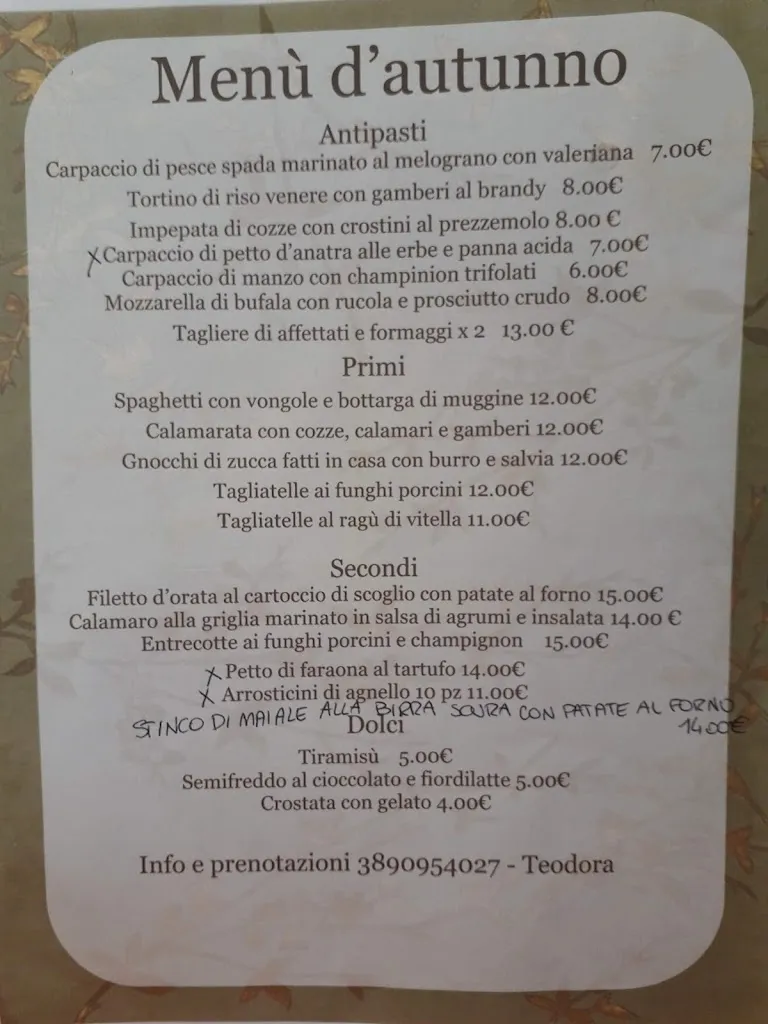 Menù d'autunno
Antipasti
Carpaccio di pesce spada marinato al melograno con valeriana 7.00€
Tortino di riso venere con gamberi al brandy 8.00€
Impepata di cozze con crostini al prezzemolo 8.00 €
X Carpaccio di petto d'anatra alle erbe e panna acida 7.00€
Carpaccio di manzo con champinion trifolati 6.00€
Mozzarella di bufala con rucola e prosciutto crudo 8.00€
Tagliere di affettati e formaggi x 2 13.00 €
Primi
Spaghetti con vongole e bottarga di muggine 12.00€
Calamarata con cozze, calamari e gamberi 12.00€
Gnocchi di zucca fatti in casa con burro e salvia 12.00€
Tagliatelle ai funghi porcini 12.00€
Tagliatelle al ragù di vitella 11.00€
Secondi
Filetto d'orata al cartoccio di scoglio con patate al forno 15.00€
Calamaro alla griglia marinato in salsa di agrumi e insalata 14.00 €
Entrecotte ai funghi porcini e champignon 15.00€
X Petto di faraona al tartufo 14.00€
X Arrosticini di agnello 10 pz 11.00€
STINCO DI MAIALE ALLA BIRRA SCURA CON PATATE AL FORNO
14.00€
Dolci
Tiramisù 5.00€
Semifreddo al cioccolato e fiordilatte 5.00€
Crostata con gelato 4.00€
Info e prenotazioni 3890954027 - Teodora